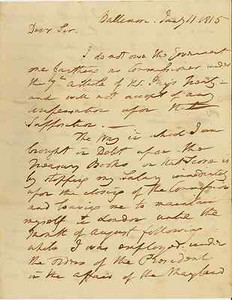 Baltimore Jany 11 1815
Dear Sir.
I do not owe the Government
one farthing as Commissioner under
the 7th article of Mr. Jays Treaty
and will not accept of any
dispensation upon that
Supposition
The Way in which I am
brought in Debt upon the
Treasury Books, on that Score is
by stopping my Salary immediately
upon the closing of the Commission
and leaving me to maintain
myself in London until the
Month of August following
while I was employed under
the orders of the President
in the affairs of the Maryland